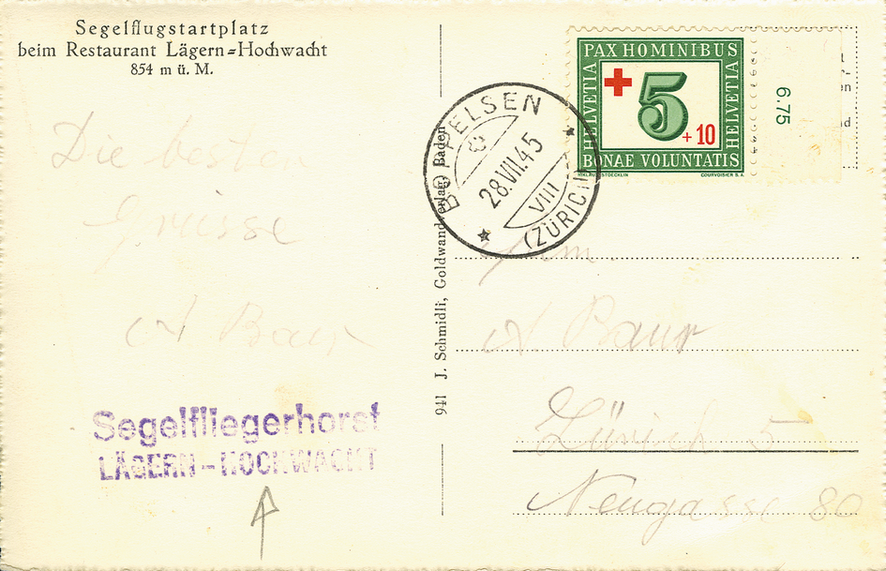 Segelflugstartplatz
beim Restaurant Lägern-Hochwacht
854 m ü. M.
Die besten
Grüsse
A Baur
Segelfliegerhorst
LÄGERN-HOCHWACHT
941 J. Schmidli, Goldwandverlag, Baden
BOPPELSEN
28.VII.45
VIII
(ZÜRICH)
PAX HOMINIBUS
HELVETIA
5
+10
HELVETIA
BONAE VOLUNTATIS
COURVOISIER S.A.
6.75
A Baur
Zürich 5
Neugasse 80